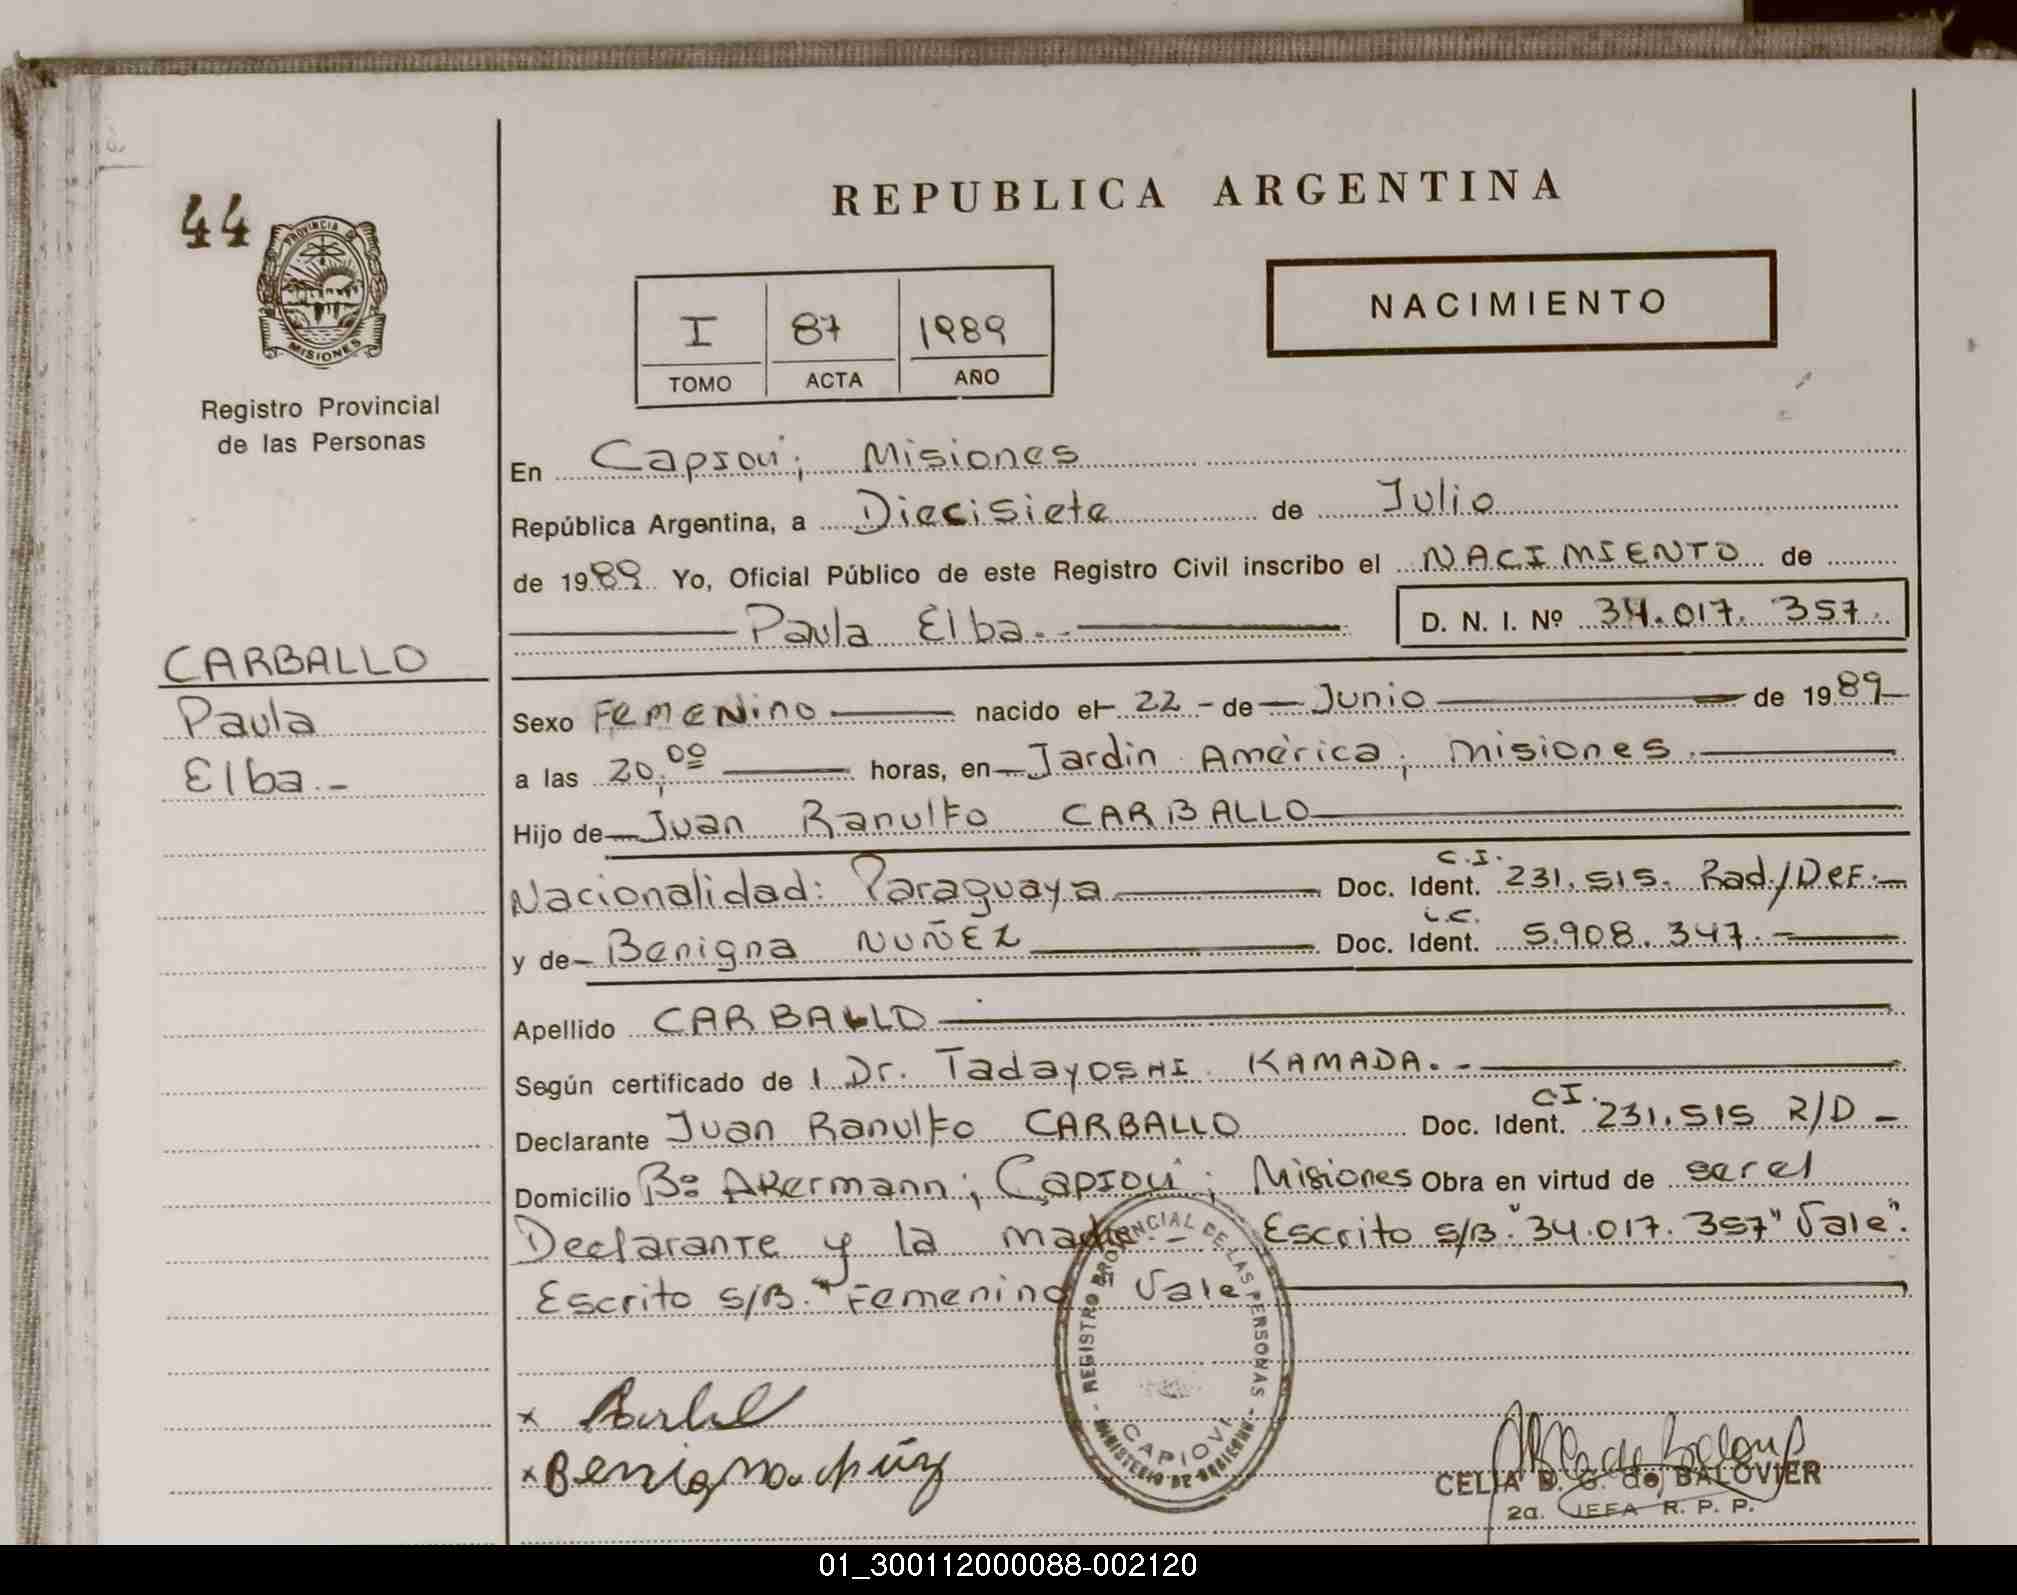 REPUBLICA ARGENTINA
44
PROVINCIA DE
MISIONES
Registro Provincial
de las Personas
I 87 1989
TOMO ACTA AÑO
NACIMIENTO
En Capioví; Misiones
República Argentina, a Diecisiete de Julio
de 1989 Yo, Oficial Público de este Registro Civil inscribo el NACIMIENTO de
Paula Elba.- D. N. I. Nº 34.017.357.
CARBALLO
Paula
Elba.-
Sexo FEMENINO nacido el 22 - de Junio de 1989
a las 20,00 horas, en Jardin América; Misiones.
Hijo de Juan Ranulfo CARBALLO
Nacionalidad: Paraguaya Doc. Ident. C.I. 231.515. Rad./Def.
y de Benigna NUÑEZ Doc. Ident. L.C. 5.908.347.-
Apellido CARBALLO
Según certificado de l Dr. Tadayoshi KAMADA.-
Declarante Juan Ranulfo CARBALLO Doc. Ident. C.I. 231.515 R/D -
Domicilio Bº AKermann; Capioví; Misiones Obra en virtud de ser el
Declarante y la madre.- Escrito s/B. "34.017.357" Vale".
Escrito s/B. "Femenino" Vale
REGISTRO PROVINCIAL DE LAS PERSONAS
CAPIOVI
x
x Benigna
CELIA B. G. de BALOVIER
2a. JEFA R. P. P.
01_300112000088-002120